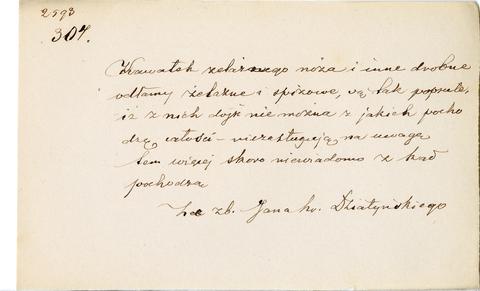 2593
307.
Kawałek żelaznego noża i inne drobne
odłamy żelazne i spiżowe, są tak popsute,
iż z nich dojść nie można z jakich pocho
dzą całości – niezasługują na uwagę
tem więcej skoro niewiadomo z kąd
pochodzą
Ze zb. Jana hr. Działyńskiego